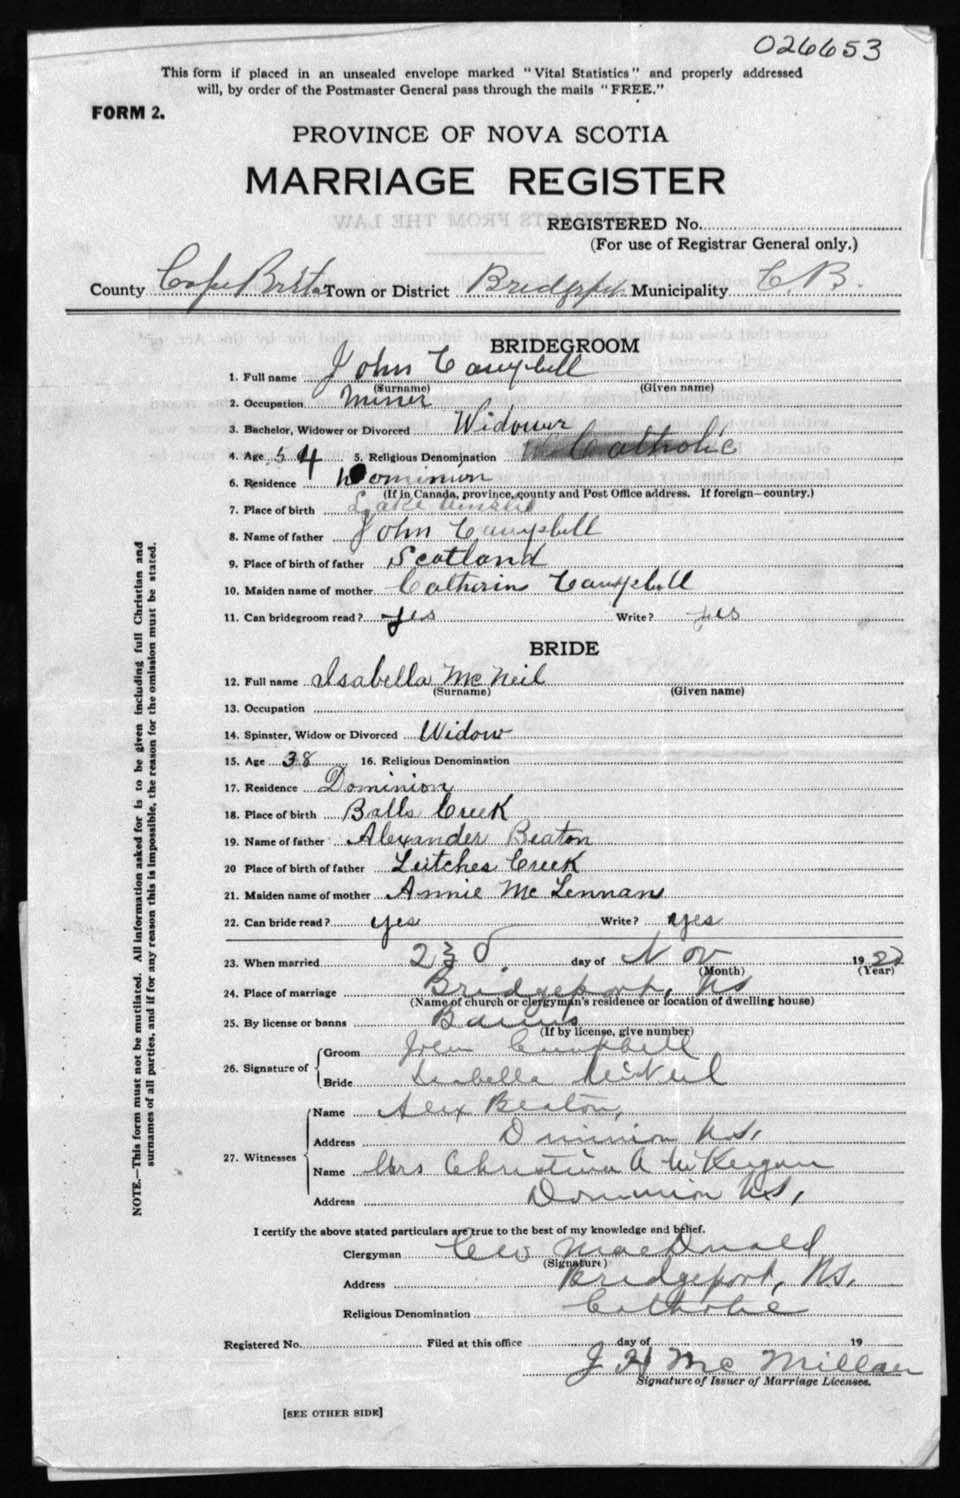 026653
This form if placed in an unsealed envelope marked "Vital Statistics" and properly addressed
will, by order of the Postmaster General pass through the mails "FREE."
FORM 2.
PROVINCE OF NOVA SCOTIA
MARRIAGE REGISTER
REGISTERED No.
(For use of Registrar General only.)
County Cape Breton Town or District Bridgeport Municipality C. B.
BRIDEGROOM
1. Full name John Campbell
(Surname) (Given name)
2. Occupation Miner
3. Bachelor, Widower or Divorced Widower
4. Age 54 5. Religious Denomination Catholic
6. Residence Dominion
(If in Canada, province, county and Post Office address. If foreign—country.)
7. Place of birth Lake Ainslie
8. Name of father John Campbell
9. Place of birth of father Scotland
10. Maiden name of mother Catherin Campbell
11. Can bridegroom read? yes Write? yes
BRIDE
12. Full name Isabella Mc Neil
(Surname) (Given name)
13. Occupation
14. Spinster, Widow or Divorced Widow
15. Age 38 16. Religious Denomination
17. Residence Dominion
18. Place of birth Balls Creek
19. Name of father Alexander Beaton
20 Place of birth of father Leitches Creek
21. Maiden name of mother Annie Mc Lennan
22. Can bride read? yes Write? yes
23. When married 23d day of Nov 19
(Month) (Year)
24. Place of marriage Bridgeport, NS
(Name of church or clergyman's residence or location of dwelling house)
25. By license or banns Banns
(If by license, give number)
26. Signature of Groom John Campbell
Bride Isabella McNeil
27. Witnesses Name Alex Beaton,
Address Dominion N.S.,
Name Mrs Christina A McKeigan
Address Dominion N.S.,
I certify the above stated particulars are true to the best of my knowledge and belief.
Clergyman MacDonald
(Signature)
Address Bridgeport, N.S.
Religious Denomination Catholic
Registered No. Filed at this office day of 19
J H Mc Millan
Signature of Issuer of Marriage Licenses.
[SEE OTHER SIDE]
NOTE.—This form must not be mutilated. All information asked for is to be given including full Christian and
surnames of all parties, and if for any reason this is impossible, the reason for the omission must be stated.